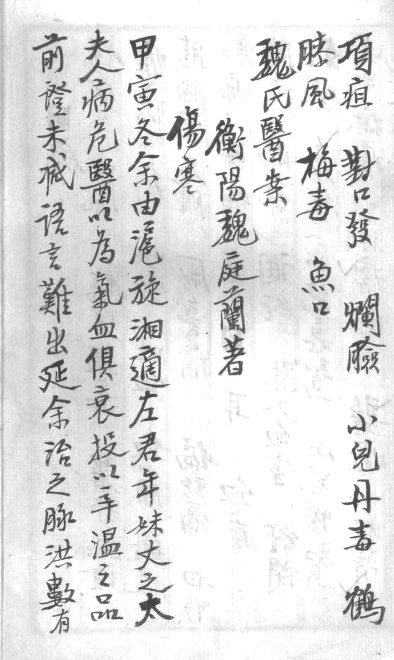 項疽 對口發 爛臉 小兒丹毒 鶴
膝風 梅毒 魚口
魏氏醫案
衡陽魏庭蘭著
傷寒
甲寅冬余由滬旋湘適左君年妹丈之太
夫人病危醫以為氣血俱衰投以辛溫之品
前證未減語言難出延余治之脉洪數有